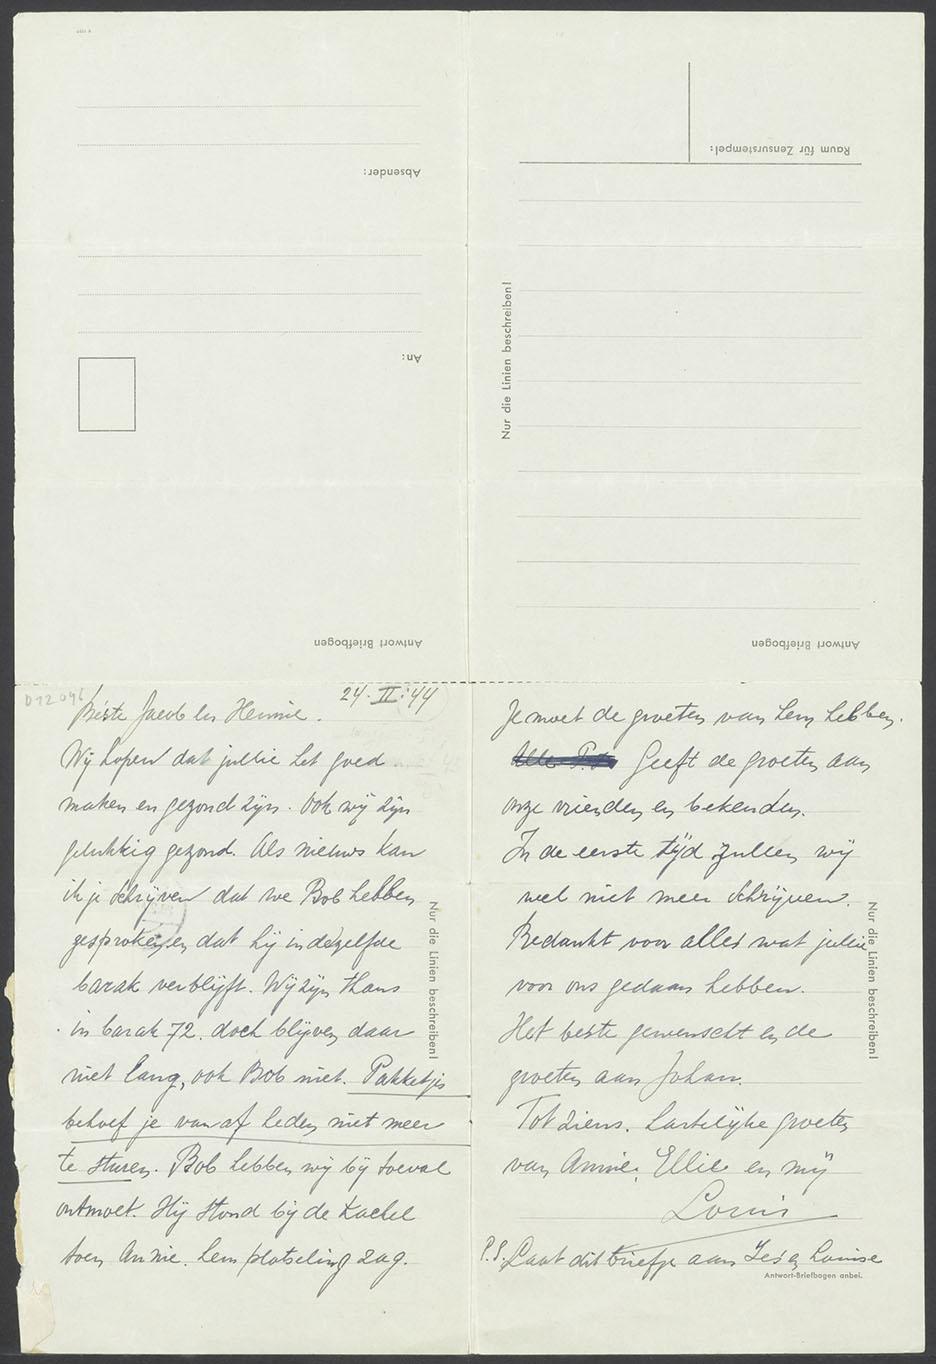 Absender:
An:
Antwort Briefbogen
Raum für Zensurstempel:
Nur die Linien beschreiben!
Antwort Briefbogen
D12046
24·II·'44
Beste Jacob en Hennie.
Wij hopen dat jullie het goed
maken en gezond zijn. Ook wij zijn
gelukkig gezond. Als nieuws kan
ik je schrijven dat we Bob hebben
gesproken en dat hij in dezelfde
barak verblijft. Wij zijn thans
in barak 72. doch blijven daar
niet lang, ook Bob niet. Pakketjes
behoef je vanaf heden niet meer
te sturen. Bob hebben wij bij toeval
ontmoet. Hij stond bij de kachel
toen Annie. hem plotseling zag.
Nur die Linien beschreiben!
Je moet de groeten van hem hebben.
Geeft de groeten aan
onze vrienden en bekenden.
In de eerste tijd zullen wij
wel niet meer schrijven.
Bedankt voor alles wat jullie
voor ons gedaan hebben.
Het beste gewenscht en de
groeten aan Johan.
Tot ziens. Hartelijke groeten
van Annie, Ellie en mij
Louis
P.S. Laat dit briefje aan en Louise
Nur die Linien beschreiben!
Antwort-Briefbogen anbei.